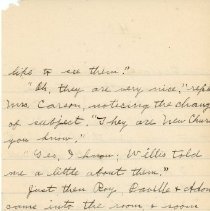 like to see them."
"Oh, they are very nice," rep
Mrs. Carson, noticing the chang
of subject. "They are New Chur
you know."
"Yes, I know; Willes told
me a little about them."
Just then Roy, Daville & Adon
came into the room & soon